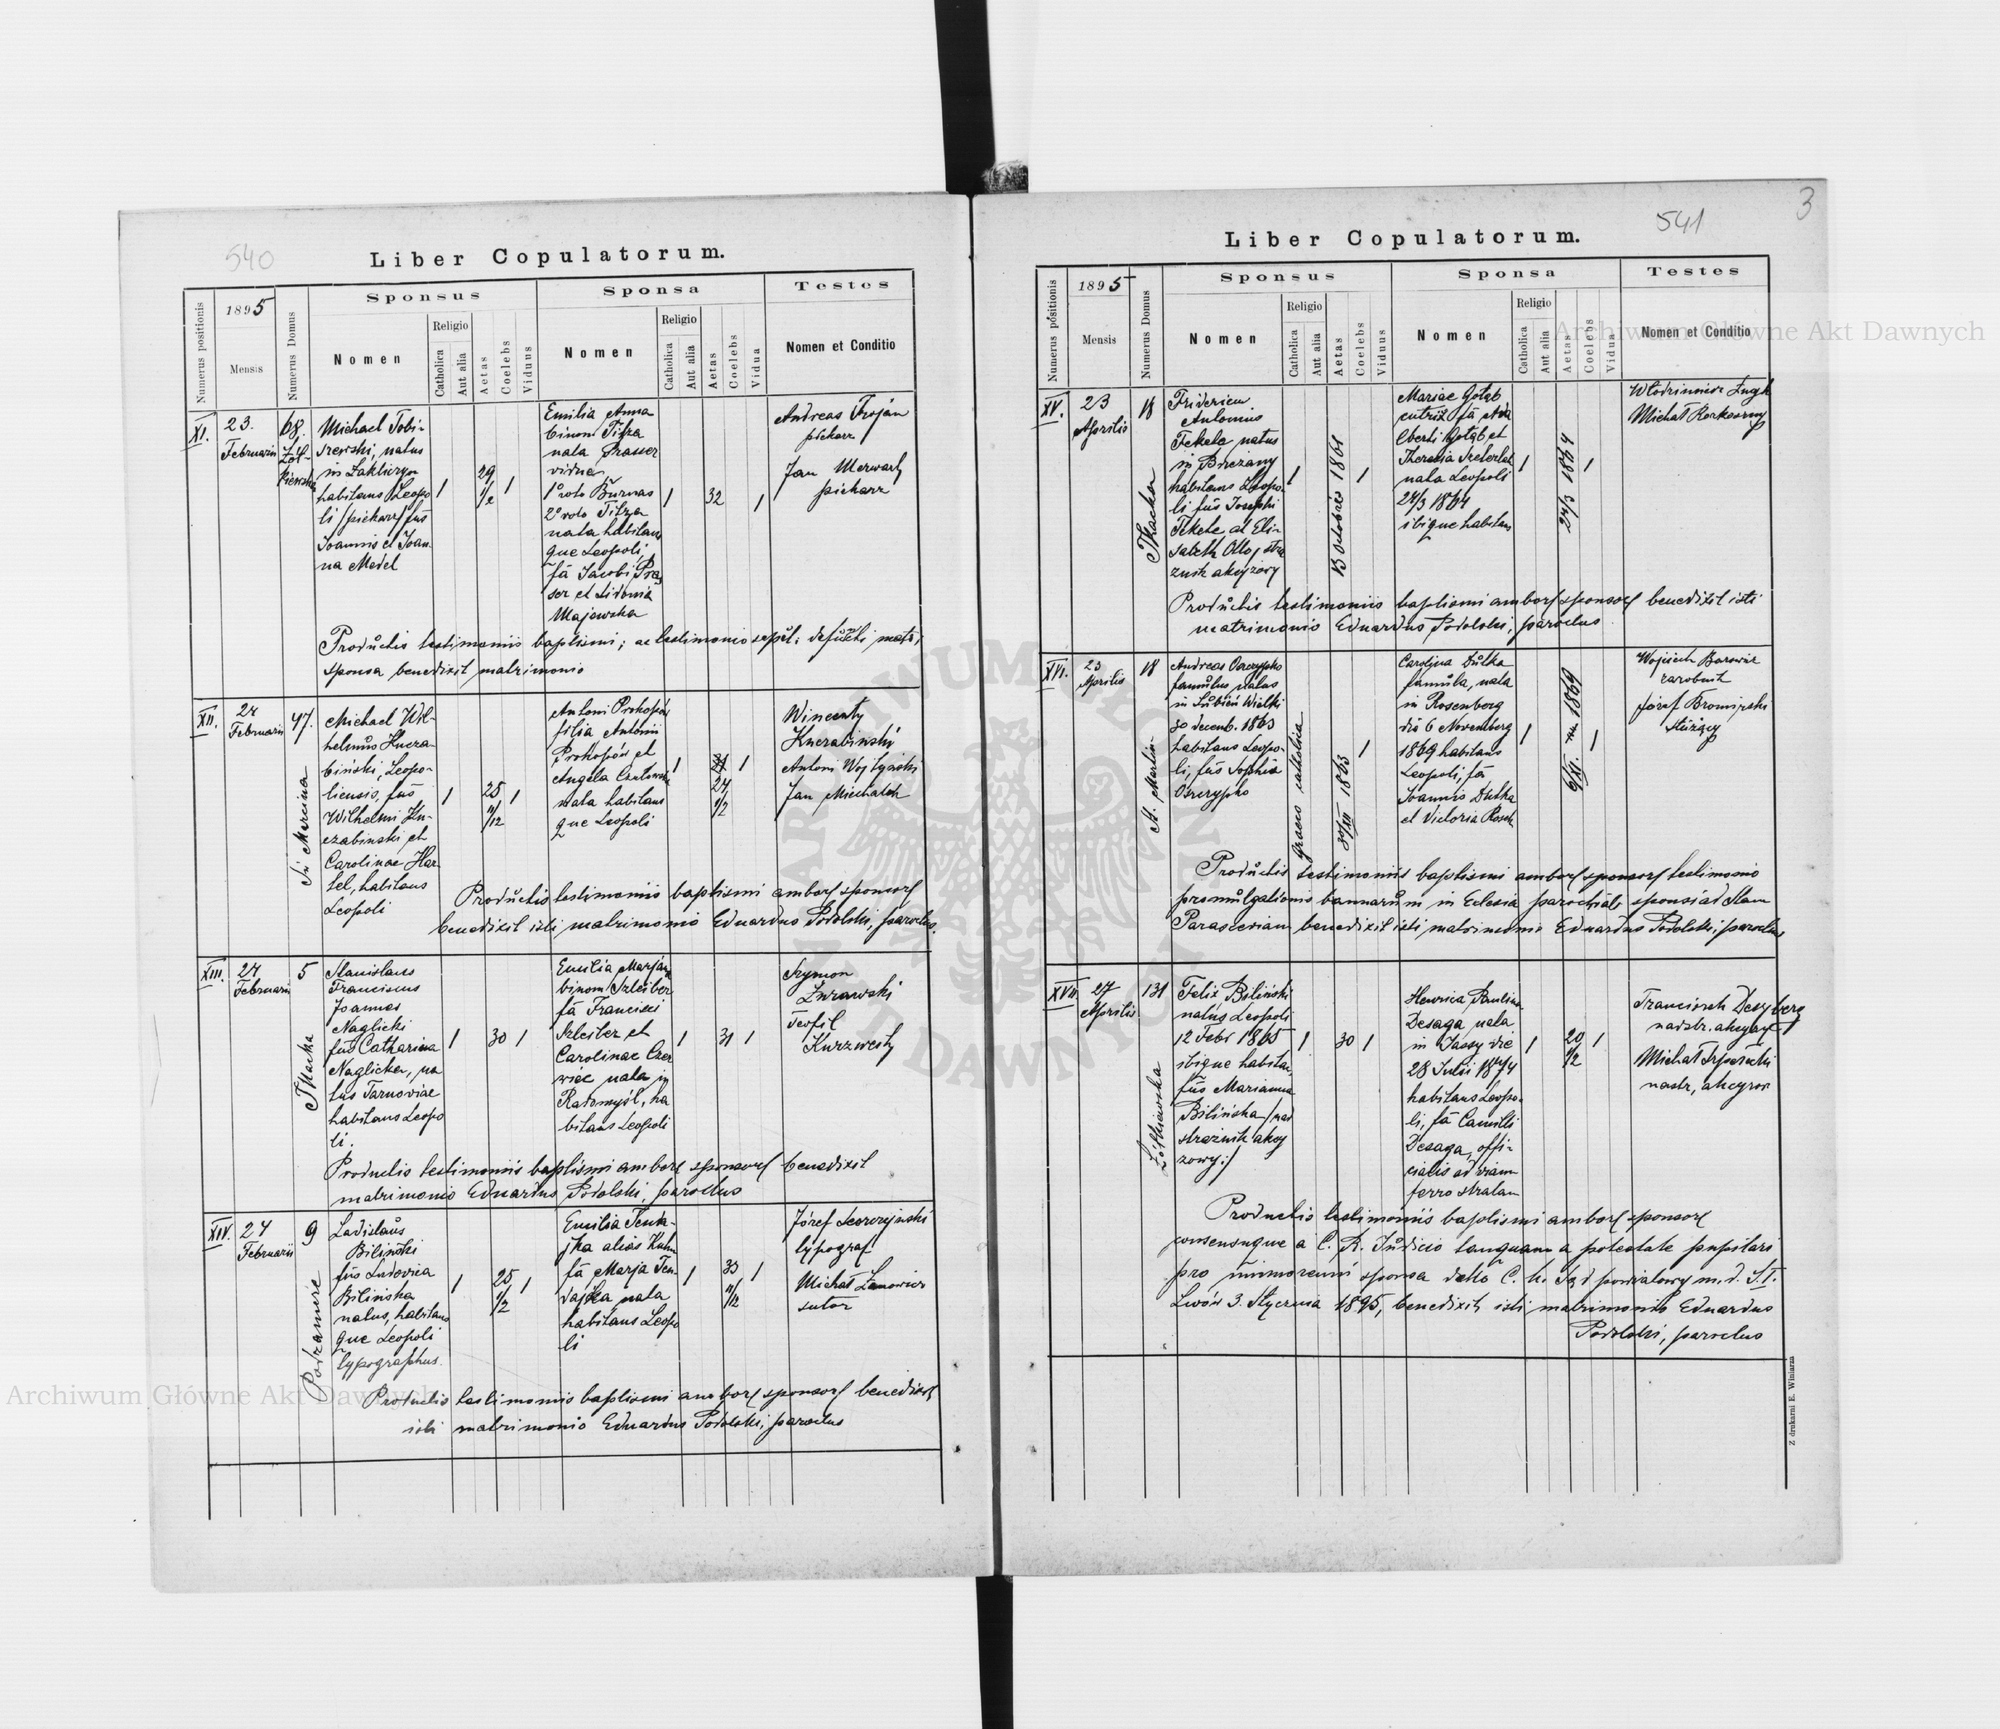 540
Liber Copulatorum.
Numerus positionis
1895
Mensis
Numerus Domus
Sponsus
Nomen
Religio
Catholica
Aut alia
Aetas
Coelebs
Viduus
Sponsa
Nomen
Religio
Catholica
Aut alia
Aetas
Coelebs
Vidua
Testes
Nomen et Conditio
XI.
23.
Februarii
68.
Żół-
kiewska
Michael Tobi-
in Zakliczyn
habitans Leopo
li /piekarz/ fūs
Joannis et Joan-
na Medel
1
29
1/2
1
Emilia Anna
binom Titza
nata Prasser
vidua
1º voto Burnas
2º voto Titza
nata habitans
que Leopoli,
fā Jacobi Pras
ser et Sidonia
Majewska
1
32
1
Andreas Trojan
piekarz
Jan Merwart
piekarz
Productis testimoniis baptismi; ac testimonio sepult: defuncti mariti
sponsa benedixit matrimonio
XII.
24
Februarii
47.
Ś. Marcina
Michael Wil-
helmus Kucza-
biński, Leopo-
liensis, fūs
Wilhelmi Ku-
czabinski et
Carolinae Har
tel, habitans
Leopoli
1
25
11/12
1
Antoni Prokopów
filia Antonii
Prokopów et
Angela
nata habitans
que Leopoli
1
24
1/2
1
Wincenty
Kuczabinski
Antoni Wojtyński
Jan Miechalek
Productis testimoniis baptismi ambor sponsor
benedixit isti matrimonio Eduardus Podolski, parochus.
XIII.
24
Februarii
5
Tkacka
Stanislaus
Franciscus
Joannes
Naglicki
fūs Catharina
Naglicka, na
tus Tarnoviae
habitans Leopo
li.
1
30
1
Emilia Marjan
binom Szleiber
fā Francisci
Szleiber et
Carolinae Czer
wiec nata in
Radomyśl, ha
bitans Leopoli
1
31
1
Szymon
Żurawski
Teofil
Kurzwesty
Productis testimoniis baptismi ambor sponsor benedixit
matrimonio Eduardus Podolski, parochus
XIV.
24
Februarii
9
Podzamcze
Ladislaus
Biliński
fūs Ludovica
Bilińska
natus, habitans
que Leopoli
typographus.
1
25
1/2
1
Emilia
alias Kuhn
fā Marja
nata
habitans Leopo
li
1
33
11/12
1
Józef Leszczyński
typograf
Michał Łanowicz
sutor
Productis testimoniis baptismi ambor sponsor benedixit
isti matrimonio Eduardus Podolski, parochus
3
541
Liber Copulatorum.
Numerus positionis
1895
Mensis
Numerus Domus
Sponsus
Nomen
Religio
Catholica
Aut alia
Aetas
Coelebs
Viduus
Sponsa
Nomen
Religio
Catholica
Aut alia
Aetas
Coelebs
Vidua
Testes
Nomen et Conditio
XV.
23
Aprilis
18
Tkacka
Fridericu
Antonius
Fekete natus
in Brzezany
habitans Leopo-
li fūs Josephi
Fekete et Eli-
sabeth Otto, stra
znik akcyzowy
1
13 octobris 1861
1
Mariae Gołąb
fā Ada
lberti Gołąb et
Theresia
nata Leopoli
24/3 1864
ibique habitans
1
24/3 1864
1
Włodzimierz
Michał
Productis testimoniis baptismi ambor sponsor benedixit isti
matrimonio Eduardus Podolski, parochus
XVI.
23
Aprilis
18
St. Martin
Andreas Oszczypko
famulus natus
in Lubień Wielki
30 decemb. 1863
habitans Leopo-
li, fūs Sophia
Oszczypko
Graeco catholica
30/XII 1863
1
Carolina Dutka
famula, nata
in Rosenberg
die 6 Novemberg
1869 habitans
Leopoli, fā
Joannis Dutka
et Victoria
1
6/XI. 1869
1
Wojciech Borowicz
zarobnik
Józef
służący
Productis testimoniis baptismi ambor sponsor testimonio
promulgationis bannarum in Eclesia parochiale sponsi ad Stam
Parasceviam benedixit isti matrimonio Eduardus Podolski, parochus
XVII.
27
Aprilis
131
Żółkiewska
Felix Biliński
natus Leopoli
12 Febr 1865
ibique habitan,
fūs Marianna
Bilińska /nad
strażnik akcy
zowy:/
1
30
1
Henrica Paulina
Desaga nata
in Jassy die
28 Julii 1874
habitans Leopo-
li, fā Camilli
Desaga, offi-
cialis ad viam
ferro stratam
1
20
1/2
1
Franciszek
nadstr. akcyzy
Michał
nadstr. akcyzow
Productis testimoniis baptismi ambor sponsor
consensuque a C. R. Judicio tanquam a potestate pupilari
pro minorenni sponsa C. k. Sąd powiatowy m. d. S. I.
Lwów 3. Stycznia 1895, benedixit isti matrimonio Eduardus
Podolski, parochus
Z drukarni E. Winiarza
Archiwum Główne Akt Dawnych
Archiwum Główne Akt Dawnych
ARCHIWUM GŁÓWNE AKT DAWNYCH